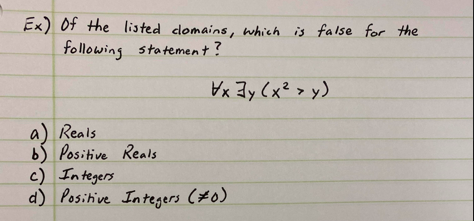 Ex) Of the listed domains, which is false for the
following statement?
∀x ∃y (x² > y)
a) Reals
b) Positive Reals
c) Integers
d) Positive Integers (≠0)